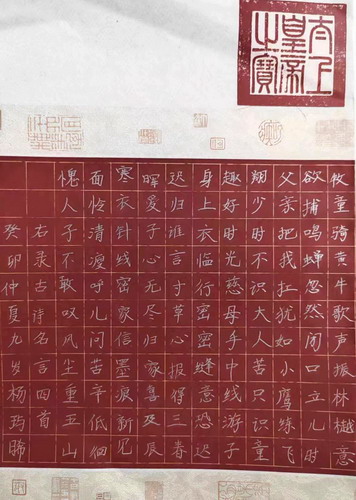 太上
皇帝
之寳
牧童骑黄牛歌声振林樾意
欲捕鸣蝉忽然闭口立儿时
父亲把我扛犹如小鹰练飞
翔少时不识大人苦只识童
趣好时光慈母手中线游子
身上衣临行密密缝意恐迟
迟归谁言寸草心报得三春
晖爱子心无尽归家喜及辰
寒衣针线密家信墨痕新见
面怜清瘦呼儿问苦辛低徊
愧人子不敢叹风尘重五山
右录古诗名言四首
癸卯仲夏九岁杨玛晞